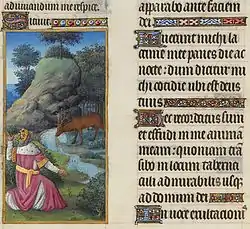 adiuvandum me respice.
Sicut
apparebo ante faciem
dei
Fuerunt michi la
crime mee panes die ac
nocte: dum dicitur mi
chi cotidie ubi est deus
tuus
Hec recordatus sum
et effudi in me anima
meam: quoniam tran
sibo in locum taberna
culi admirabilis usqz
ad domum dei
In voce exultationis